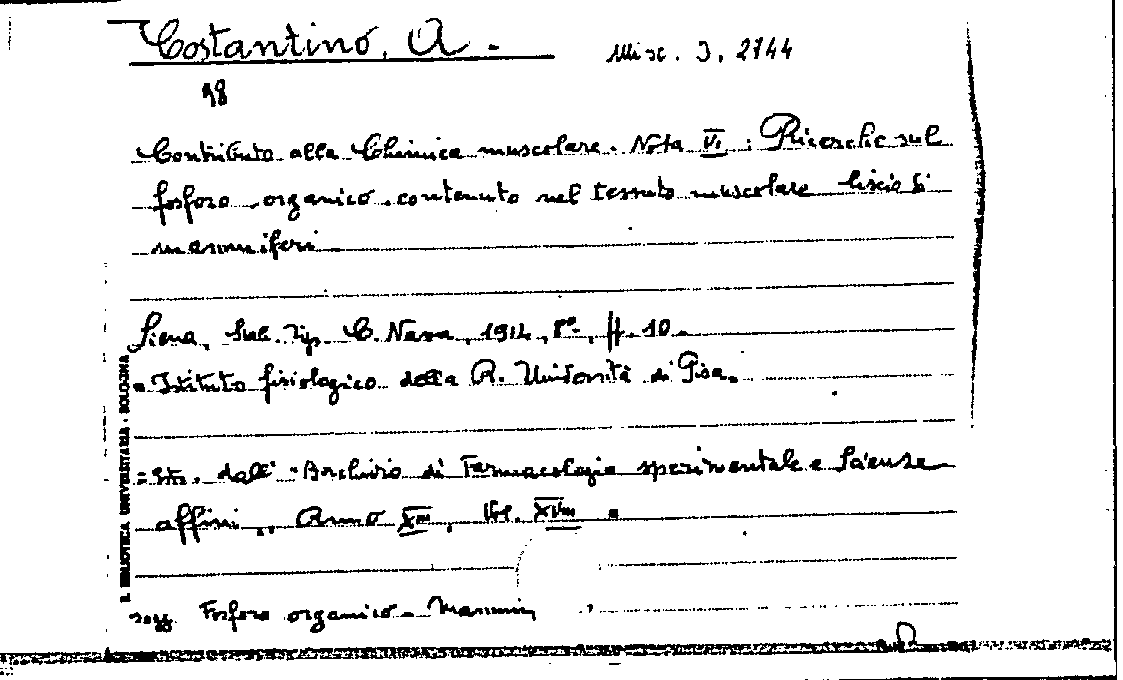 Costantino, A.
Misc. 3, 2744
98
Contributo alla Chimica muscolare. Nota VI: Ricerche sul
fosforo organico contenuto nel tessuto muscolare liscio di
mammiferi
Siena, Stab. Tip. C. Nava, 1914, 8º, ff. 10.
= Istituto fisiologico della R. Università di Pisa.
= Estr. dall' "Archivio di Farmacologia sperimentale e Scienze
affini", Anno XIII, Vol. XVIII =
sogg. Fosforo organico - Mammif
R. BIBLIOTECA UNIVERSITARIA - BOLOGNA